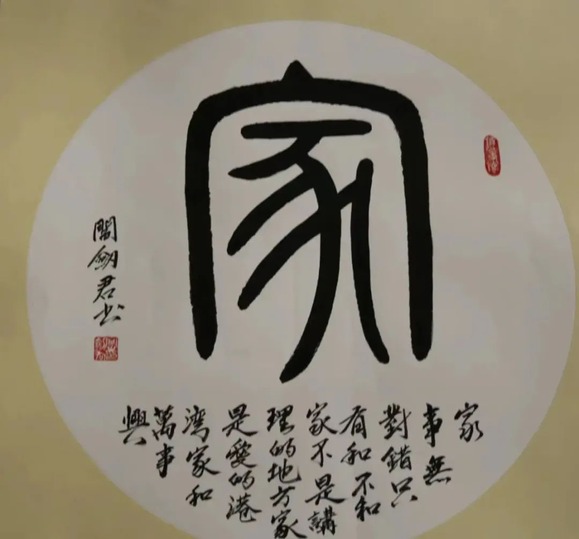 家
家
事無
對錯只
有和不和
家不是講
理的地方家
是愛的港
灣家和
萬事
興
劍君书